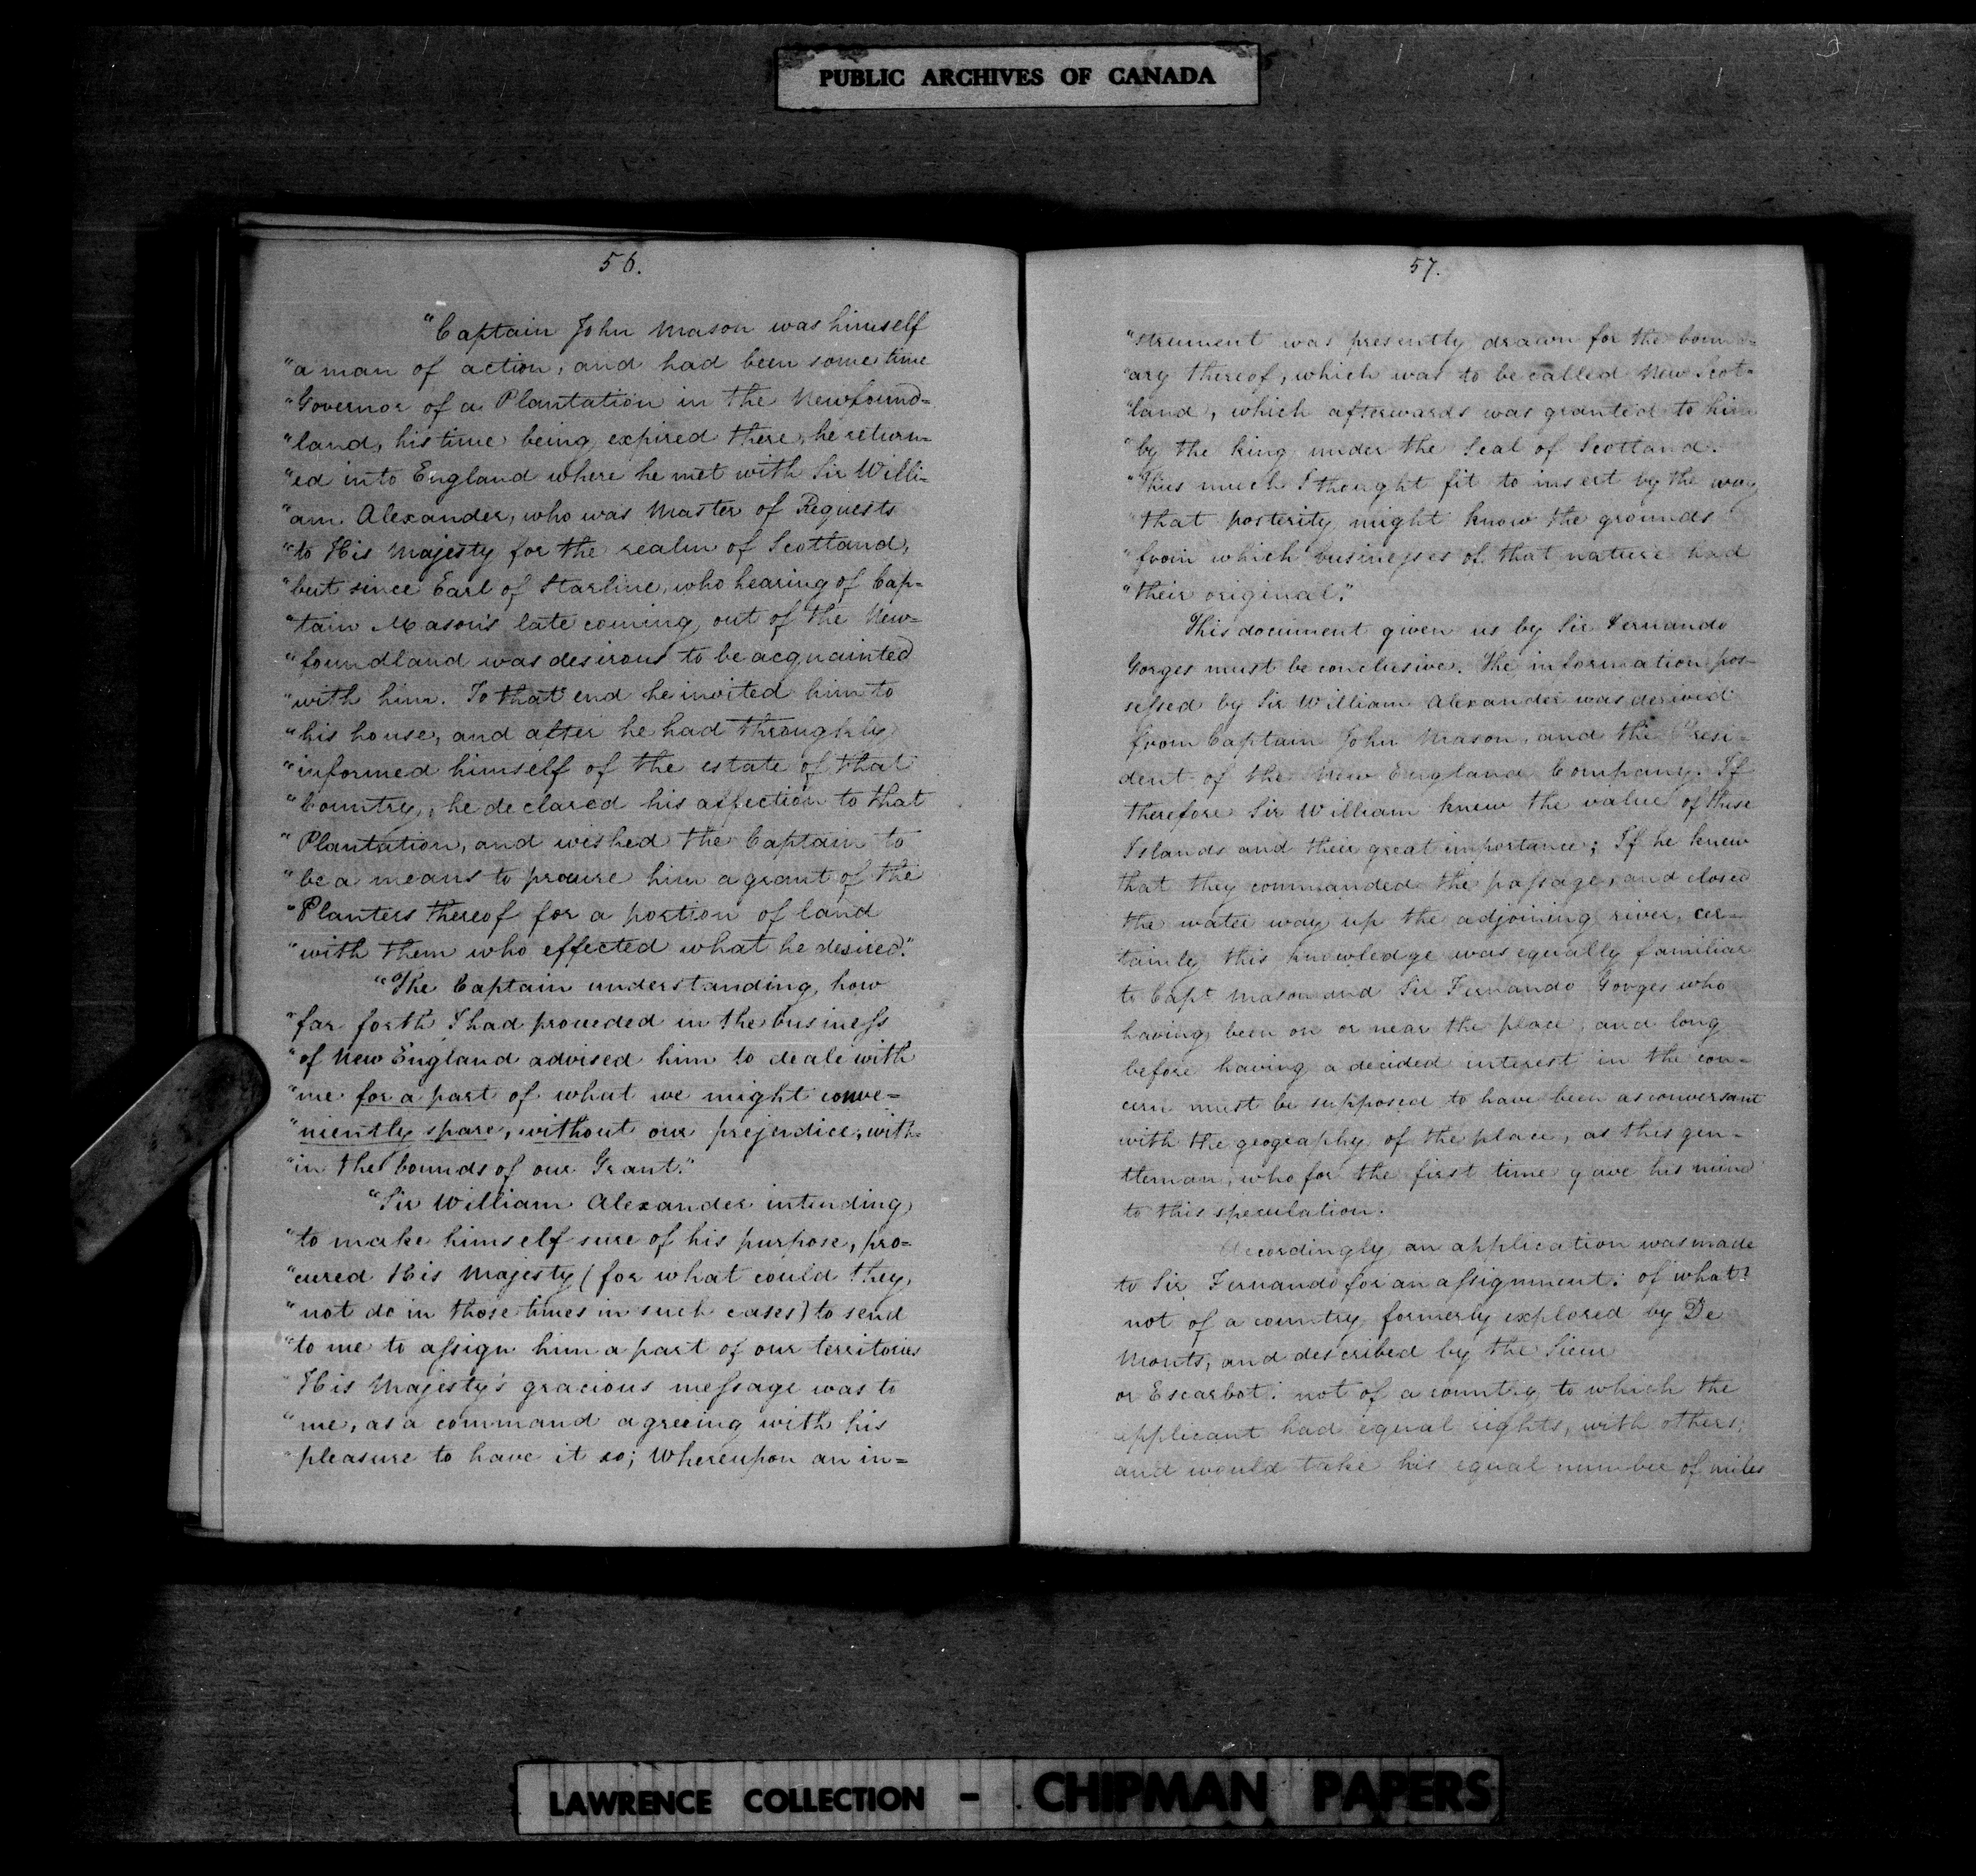 PUBLIC ARCHIVES OF CANADA
56.
"Captain John Mason was himself
"a man of action, and had been some time
"Governor of a Plantation in the Newfound=
"land, his time being expired there, he return=
"ed into England where he met with Sir Willi=
"am Alexander, who was Master of Requests
"to His Majesty for the realm of Scotland,
"but since Earl of Starline, who hearing of Cap=
"tain Mason's late coming out of the New=
"foundland was desirous to be acquainted
"with him. To that end he invited him to
"his house, and after he had throughly
"informed himself of the estate of that
"Country, he declared his affection to that
"Plantation, and wished the Captain to
"be a means to procure him a grant of the
"Planters thereof for a portion of land
"with them who effected what he desired."
"The Captain understanding how
"far forth I had proceeded in the business
"of New England advised him to deale with
"me for a part of what we might conve=
"niently spare, without our prejerdice, with=
"in the bounds of our Grant."
"Sir William Alexander intending
"to make himself sure of his purpose, pro=
"cured His Majesty (for what could they
"not do in those times in such cases) to send
"to me to assign him a part of our territories
"His Majesty's gracious message was to
"me, as a command agreeing with his
"pleasure to have it so; Whereupon an in=
57.
"strument was presently drawn for the bound=
"ary thereof, which was to be called New Scot=
"land, which afterwards was granted to him
"by the King under the Seal of Scotland.
"Thus much I thought fit to insert by the way
"that posterity might know the grounds
"from which businesses of that nature had
"their original."
This document given us by Sir Fernando
Gorges must be conclusive. The information pos=
sessed by Sir William Alexander was derived
from Captain John Mason, and the Presi=
dent of the New England Company. If
therefore Sir William knew the value of these
Islands and their great importance; If he knew
that they commanded the passage, and closed
the water way up the adjoining river, cer=
tainly this knowledge was equally familiar
to Capt Mason and Sir Fernando Gorges who
having been on or near the place, and long
before having a decided interest in the con=
cern must be supposed to have been as conversant
with the geography of the place, as this gen=
tleman, who for the first time gave his mind
to this speculation.
Accordingly an application was made
to Sir Fernando for an assignment: of what?
not of a country formerly explored by De
Monts, and described by the Sieur
or Escarbot: not of a country to which the
applicant had equal rights, with others;
and would take his equal number of miles
LAWRENCE COLLECTION - CHIPMAN PAPERS